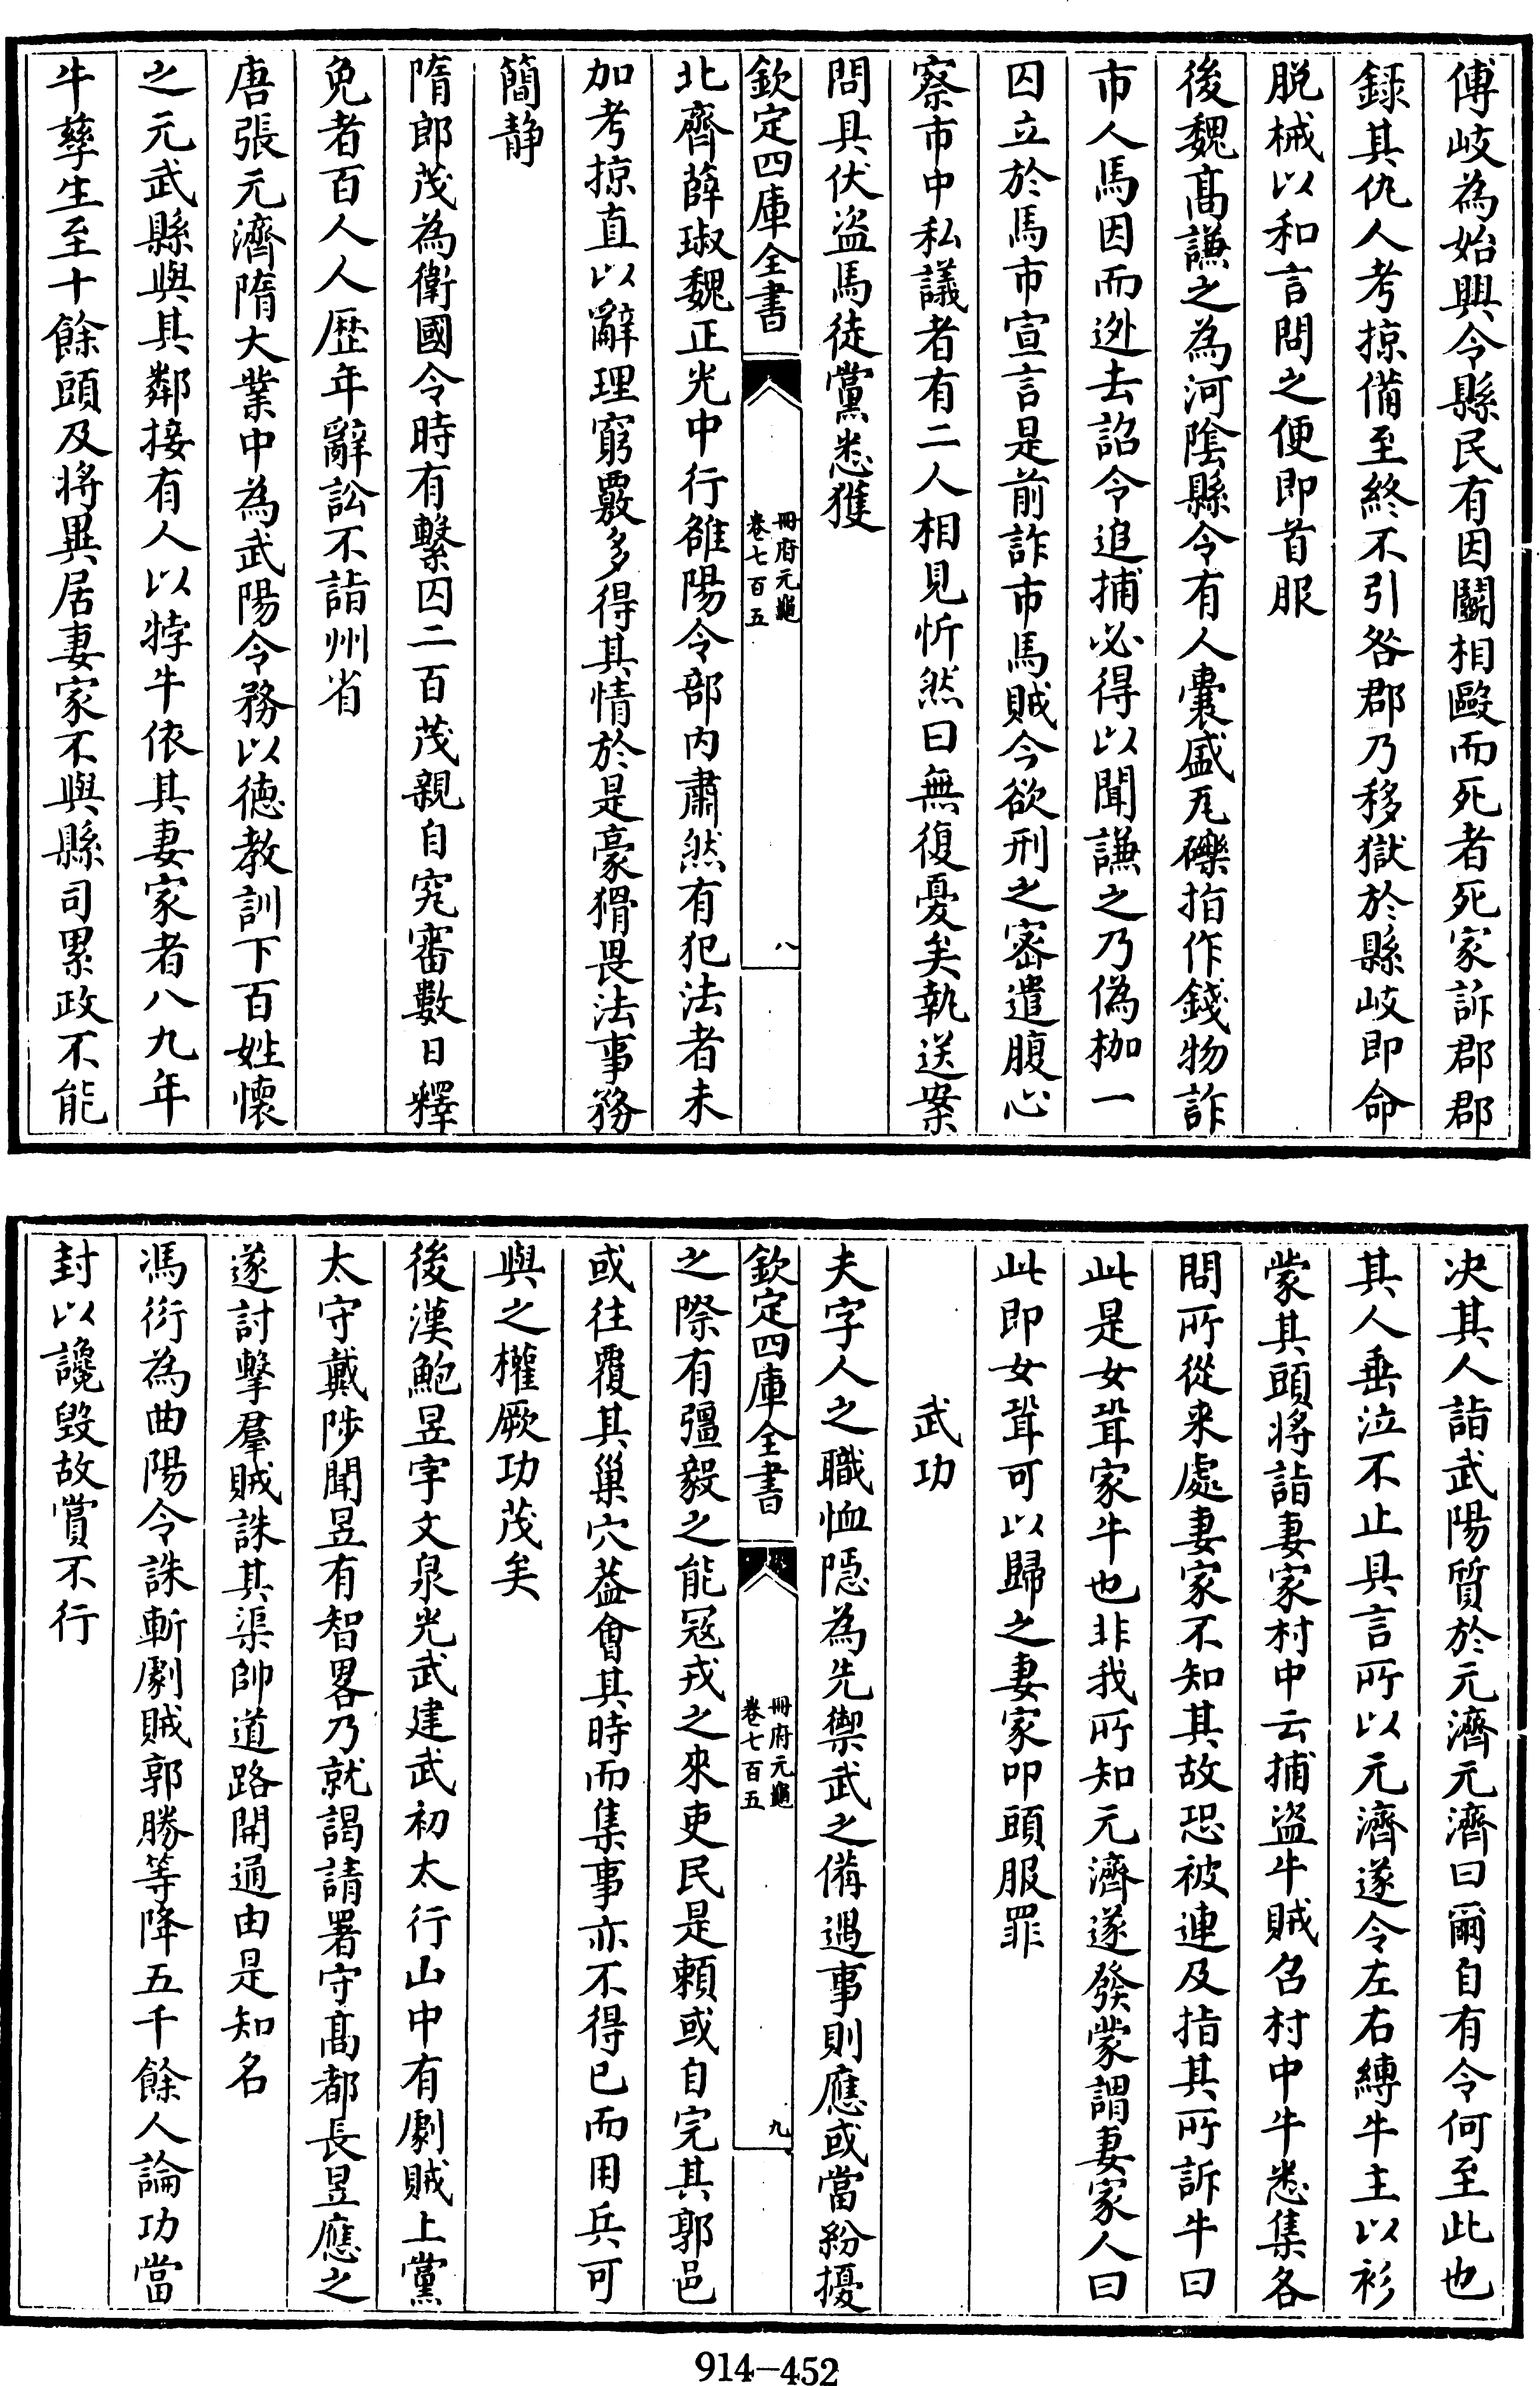 傅岐為始興令縣民有因鬬相毆而死者死家訴郡郡
録其仇人考掠備至終不引咎郡乃移獄於縣岐即命
脱械以和言問之便即首服
後魏髙謙之為河陰縣令有人囊盛瓦礫指作錢物詐
市人馬因而逊去詔令追捕必得以聞謙之乃偽枷一
囚立於馬市宣言是前詐市馬賊今欲刑之宻遣腹心
察市中私議者有二人相見忻然曰無復憂矣執送案
問具伏盗馬徒黨悉獲
欽定四庫全書
冊府元龜
卷七百五
八
北齊薛琡魏正光中行雒陽令部内肅然有犯法者未
加考掠直以辭理窮覈多得其情於是豪猾畏法事務
簡静
隋郎茂為衛國令時有繫囚二百茂親自究審數日釋
免者百人人歴年辭訟不詣州省
唐張元濟隋大業中為武陽令務以徳教訓下百姓懷
之元武縣與其鄰接有人以牸牛依其妻家者八九年
牛孳生至十餘頭及将異居妻家不與縣司累政不能
决其人詣武陽質於元濟元濟曰爾自有令何至此也
其人垂泣不止具言所以元濟遂令左右縛牛主以衫
蒙其頭将詣妻家村中云捕盗牛賊召村中牛悉集各
問所從来處妻家不知其故恐被連及指其所訴牛曰
此是女聟家牛也非我所知元濟遂發蒙謂妻家人曰
此即女聟可以歸之妻家叩頭服罪
武功
夫字人之職恤隠為先禦武之備遇事則應或當紛擾
欽定四庫全書
冊府元龜
卷七百五
九
之際有彊毅之能冦戎之來吏民是頼或自完其郭邑
或往覆其巢穴葢會其時而集事亦不得已而用兵可
與之權厥功茂矣
後漢鮑昱字文泉光武建武初太行山中有劇賊上黨
太守戴陟聞昱有智畧乃就謁請署守髙都長昱應之
遂討擊羣賊誅其渠帥道路開通由是知名
馮衍為曲陽令誅斬劇賊郭勝等降五千餘人論功當
封以讒毁故賞不行
914-452